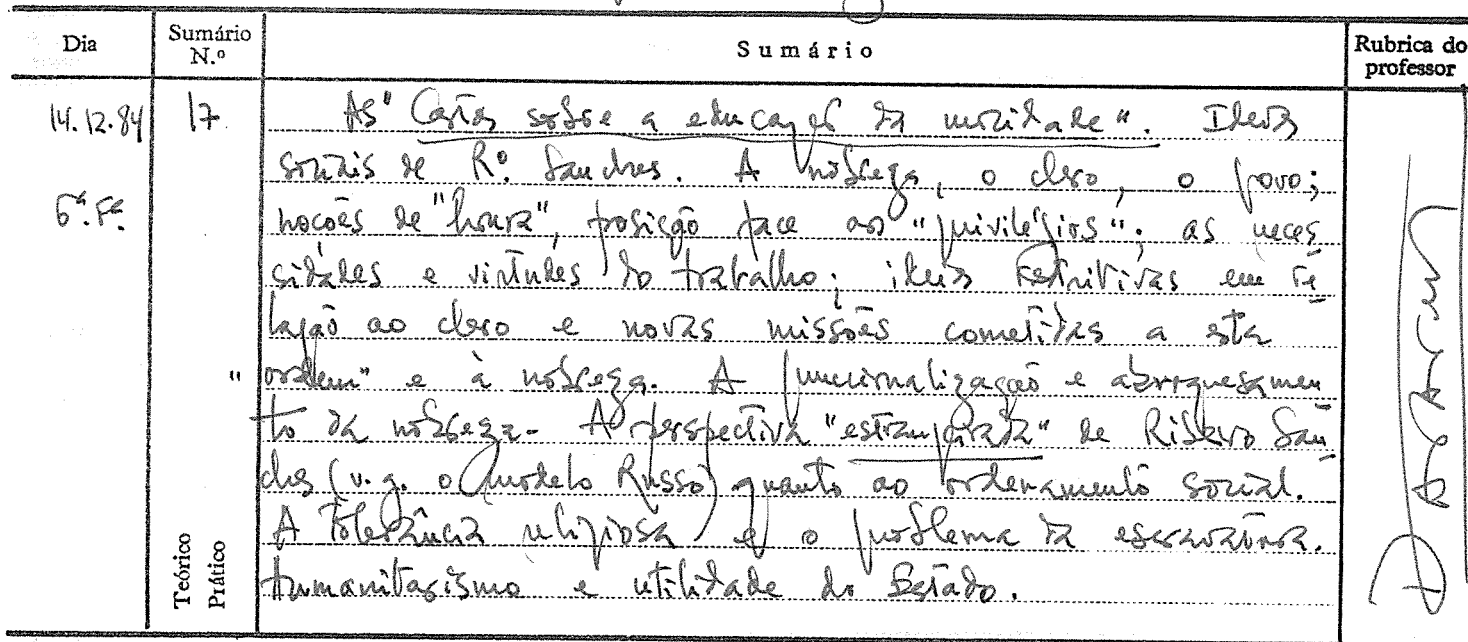 Dia Sumário N.º Sumário Rubrica do professor
14.12.84 17 As "Cartas sobre a educação da mocidade". Ideias
sociais de R.º Sanches. A nobreza, o clero, o povo;
6ª. Fª. noções de "honra", posição face aos "privilégios"; as neces
sidades e virtudes do trabalho; ideias restritivas em re
lação ao clero e novas missões cometidas a esta
"ordem" e à nobreza. A funcionalização e aburguesamen
to da nobreza. A perspectiva "estrangeirada" de Ribeiro San
ches (v. g. o modelo Russo) quanto ao ordenamento social.
A tolerância religiosa e o problema da escravatura.
Humanitarismo e utilidade do Estado.
Teórico
Prático